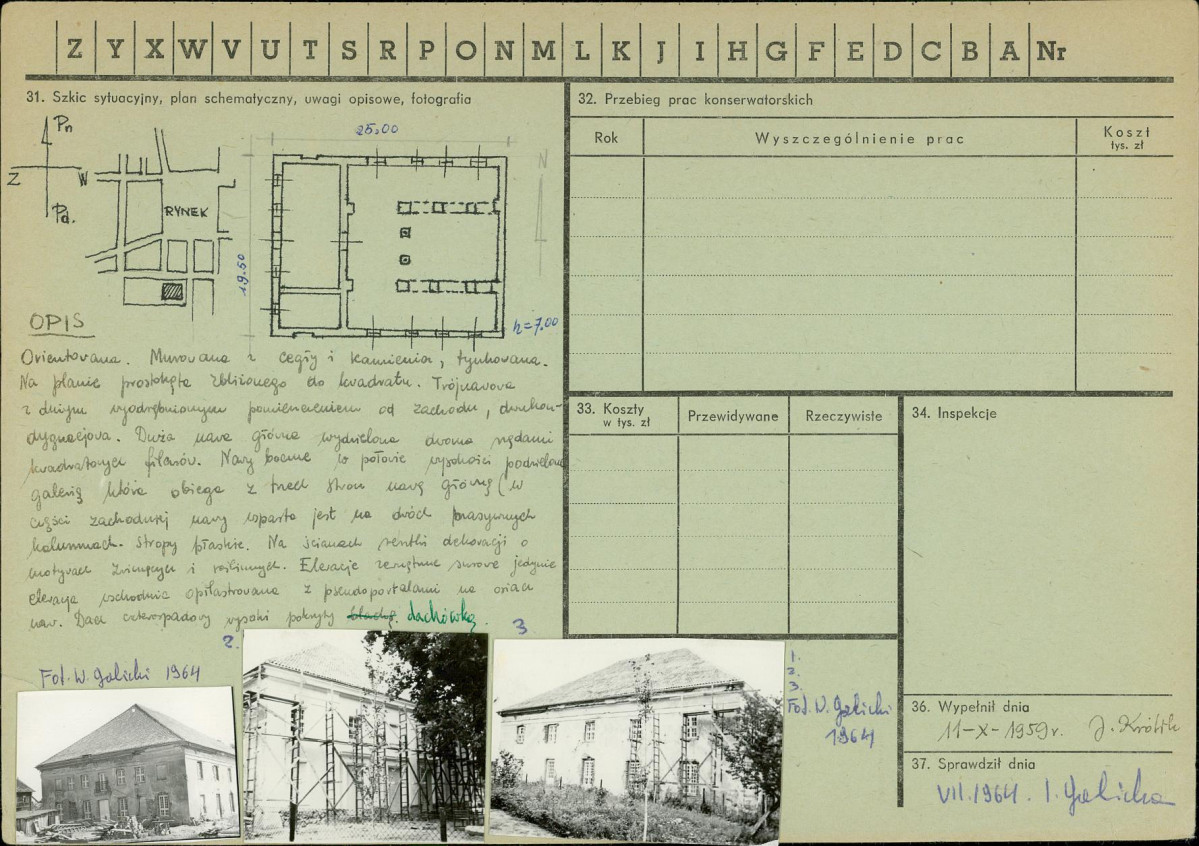 Z Y X W V U T S R P O N M L K J I H G F E D C B A Nr
31. Szkic sytuacyjny, plan schematyczny, uwagi opisowe, fotografia
Pn
Z W
Pd.
RYNEK
25,00
19.50
N
h=7.00
OPIS
Orientowana. Murowana z cegły i kamienia, tynkowana.
Na planie prostokąta zbliżonego do kwadratu. Trójnawowa
z dużym wyodrębnionym pomieszczeniem od zachodu, dwukon-
dygnacjowa. Duża nawa główna wydzielona dwoma rzędami
kwadratowych filarów. Nawy boczne w połowie wysokości podzielone
galerią która obiega z trzech stron nawę główną (w
części zachodniej nawy wsparta jest na dwóch masywnych
kolumnach. Stropy płaskie. Na ścianach resztki dekoracji o
motywach zwierzęcych i roślinnych. Elewacje zewnętrzne surowe jedynie
elewacja wschodnia opilastrowana z pseudoportalami na osiach
naw. Dach czterospadowy wysoki pokryty blachą. dachówką.
2.
3
Fot. W. Galicki 1964
1.
2.
3.
Fot. W. Galicki
1964
32. Przebieg prac konserwatorskich
Rok Wyszczególnienie prac Koszt
tys. zł
33. Koszty
w tys. zł
Przewidywane Rzeczywiste
34. Inspekcje
36. Wypełnił dnia
11-X-1959r. J. Królik
37. Sprawdził dnia
VII.1964. I. Galicka